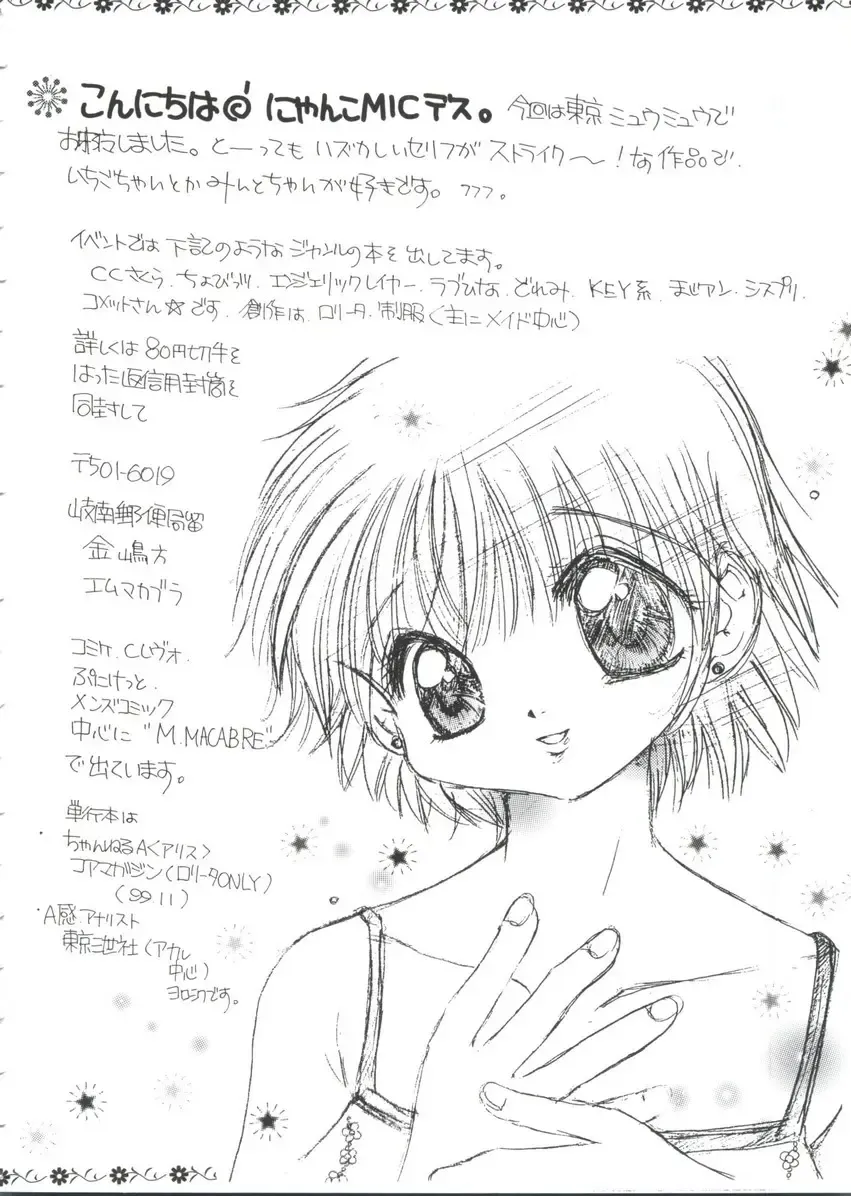 こんにちは にゃんこMICデス。 今回は東京ミュウミュウで
お邪魔しました。とーっても ハズかしいセリフが ストライク〜!な作品で、
いちごちゃんとか みんとちゃんが好きです。フフフ。
イベントでは 下記のような ジャンルの本を出してます。
CCさくら、ちょびっツ、エンジェリックレイヤー、ラブひな、どれみ、KEY系、まじアン、シスプリ、
コメットさん☆です。創作は、ロリータ、制服(主にメイド中心)
詳しくは 80円切手を
はった返信用封筒を
同封して
〒501-6019
岐南郵便局留
金嶋方
エムマカブラ
コミケ、Cレヴォ、
ぷにけっと、
メンズコミック
中心に "M.MACABRE"
で出ています。
単行本は
ちゃんねるA<アリス>
コアマガジン(ロリータONLY)
(99 11)
・A感アナリスト
東京三世社(アカレ
中心)
ヨロシクです。